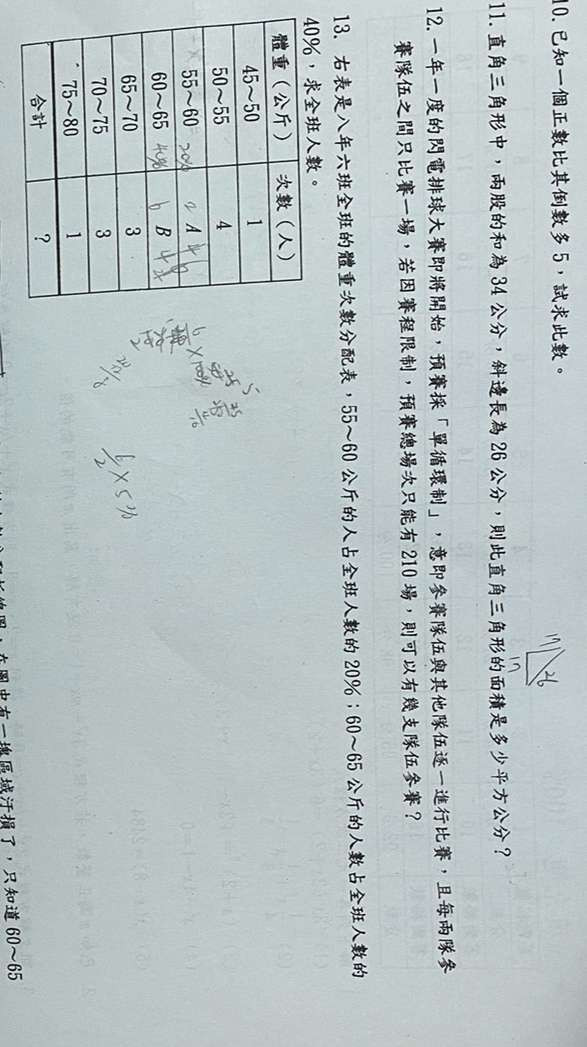 10. 已知一個正數比其倒數多 5，試求此數。
11. 直角三角形中，兩股的和為 34 公分，斜邊長為 26 公分，則此直角三角形的面積是多少平方公分？
17 26
17
12. 一年一度的閃電排球大賽即將開始，預賽採「單循環制」，意即參賽隊伍與其他隊伍逐一進行比賽，且每兩隊參
賽隊伍之間只比賽一場，若因賽程限制，預賽總場次只能有 210 場，則可以有幾支隊伍參賽？
13. 右表是八年六班全班的體重次數分配表，55～60 公斤的人占全班人數的 20%；60～65 公斤的人數占全班人數的
40%，求全班人數。
體重（公斤） 次數（人）
45～50 1
50～55 4
55～60 20% A
60～65 40% B
65～70 3
70～75 3
75～80 1
合計 ?
X 5%
在圖中有一塊區域汙損了，只知道 60～65